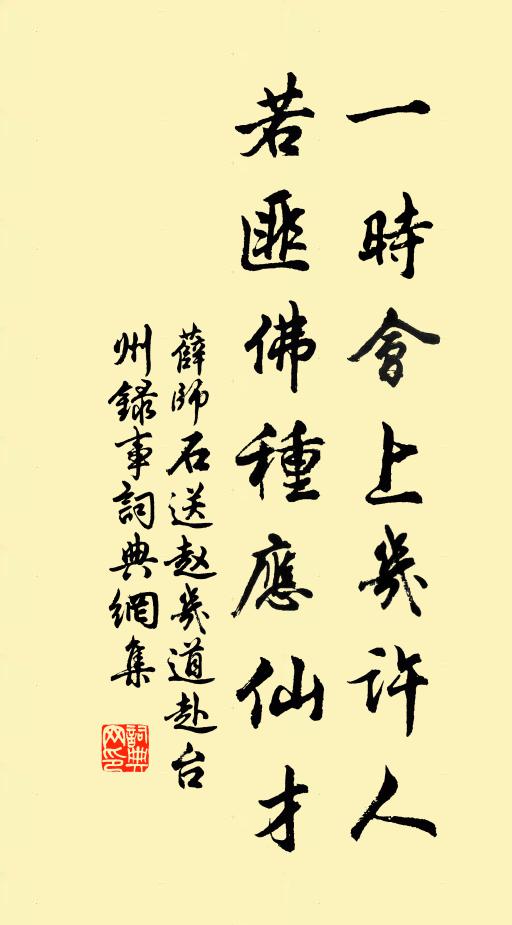 一時會上幾許人
若匪佛種應仙才
薛師石送赵幾道赴台
州録事詞典網集
詞典網印